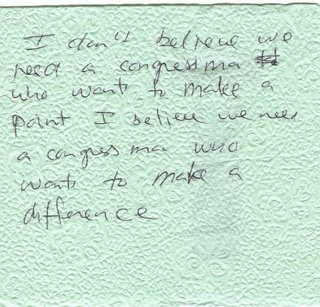 I don't believe we
need a congressma
who wants to make a
point I believe we nees
a congress man who
wants to make a
difference